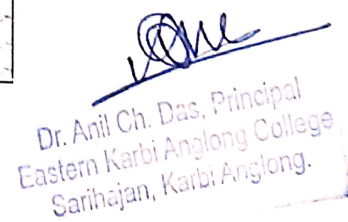 Dr. Anil Ch. Das, Principal
Eastern Karbi Anglong College
Sarihajan, Karbi Anglong.